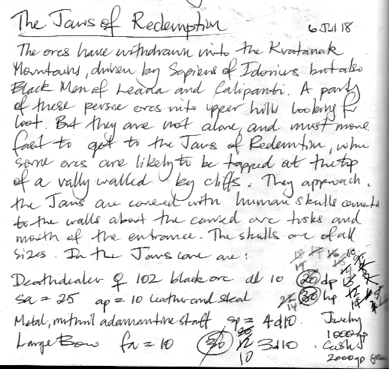 The Jaws of Redemption
6 Jul 18
The orcs have withdrawn into the Kratanak
Mountains, driven by Sapiens of Idonius but also
Black Men of Leada and Calipanti. A party
of these pursue orcs into upper hills looking for
loot. But they are not alone, and must move
fast to get to the Jaws of Redemption, where
some orcs are likely to be trapped at the top
of a vally walled by cliffs. They approach.
the Jaws are covered with human skulls cemented
to the walls about the carved orc tusks and
mouth of the entrance. The skulls are of all
sizes. In the Jaws cave are:
Deathdealer ♀ 102 black orc dl 10 hp
sa = 25 ap = 10 leather and steel
Metal, mithril adamantine staff = 4d10. Jewelry
1000gp
Large Bow fa = 10 3d10 Cash
2000gp